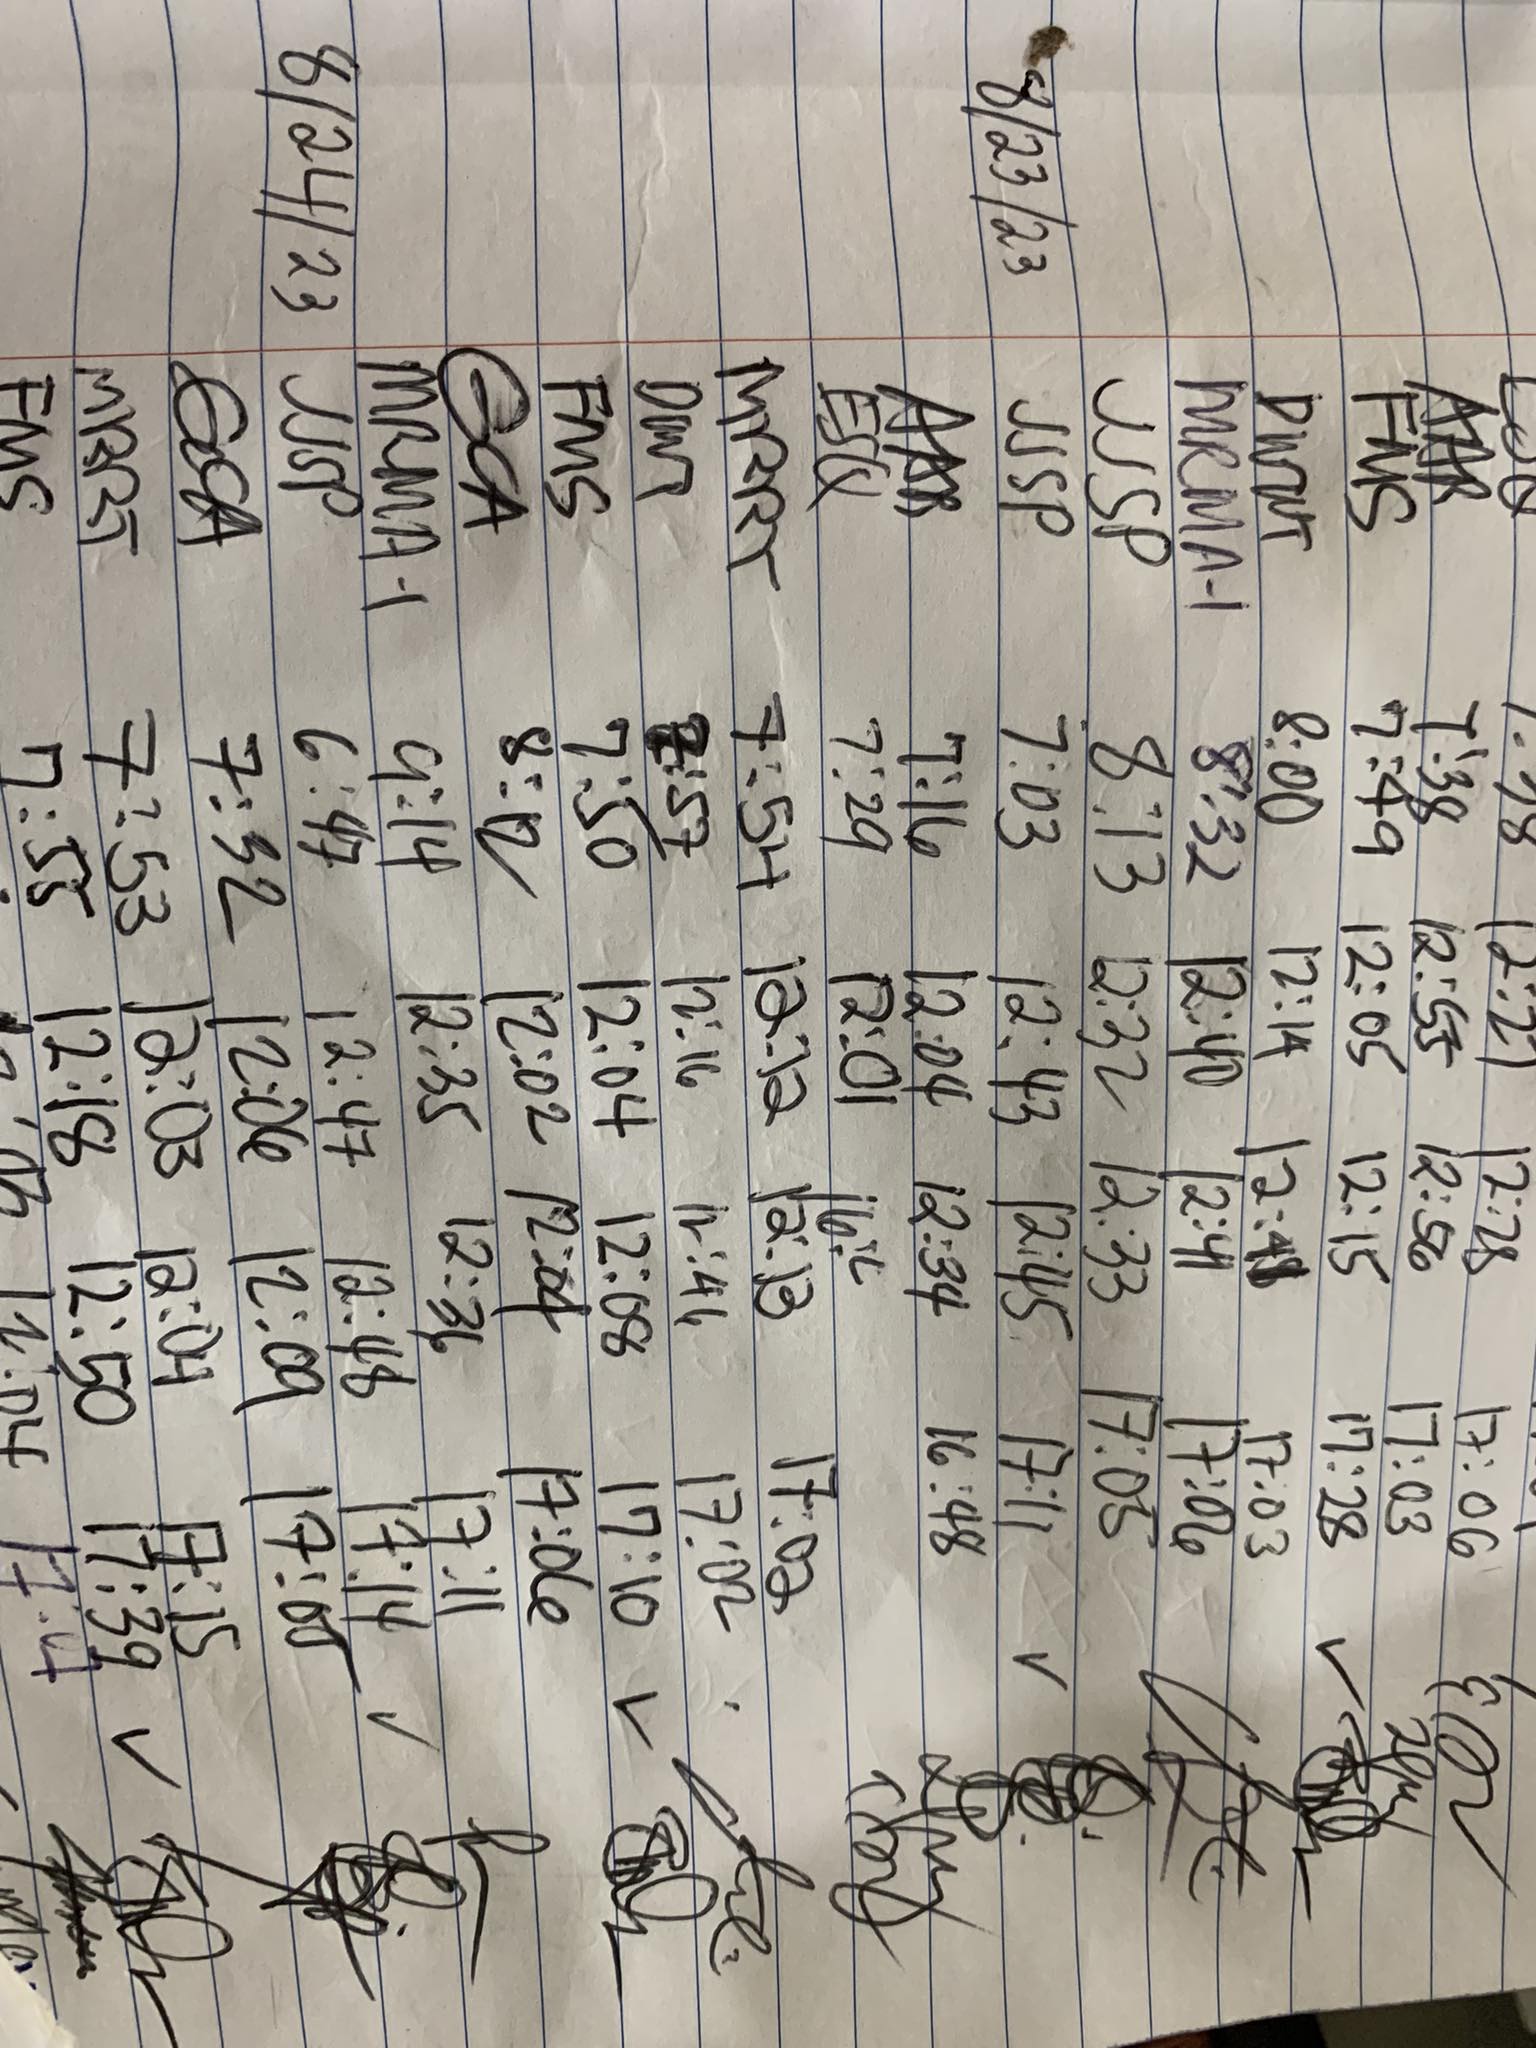 12:27 12:28 17:06
AAR 7:38 12:55 12:56 17:03
FMS 7:49 12:05 12:15 17:28 ✓
DWNT 8:00 12:14 12:48 17:03
MRMA-1 8:32 12:40 12:41 17:06
JJSP 8:13 12:32 12:33 17:05
8/23/23 JJSP 7:03 12:43 12:45 17:11 ✓
AAR 7:16 12:04 12:34 16:48
7:29 12:01
MRRT 7:54 12:12 12:13 17:02
8:57 12:16 12:46 17:02
FMS 7:50 12:04 12:08 17:10 ✓
GCA 8:12 12:02 12:04 17:06
MRMA-1 9:14 12:35 12:36 17:11
8/24/23 JJSP 6:47 12:47 12:48 17:14 ✓
GCA 7:32 12:06 12:09 17:05
MRRT 7:53 12:03 12:04 17:15
FMS 7:55 12:18 12:50 17:39 ✓
12:04